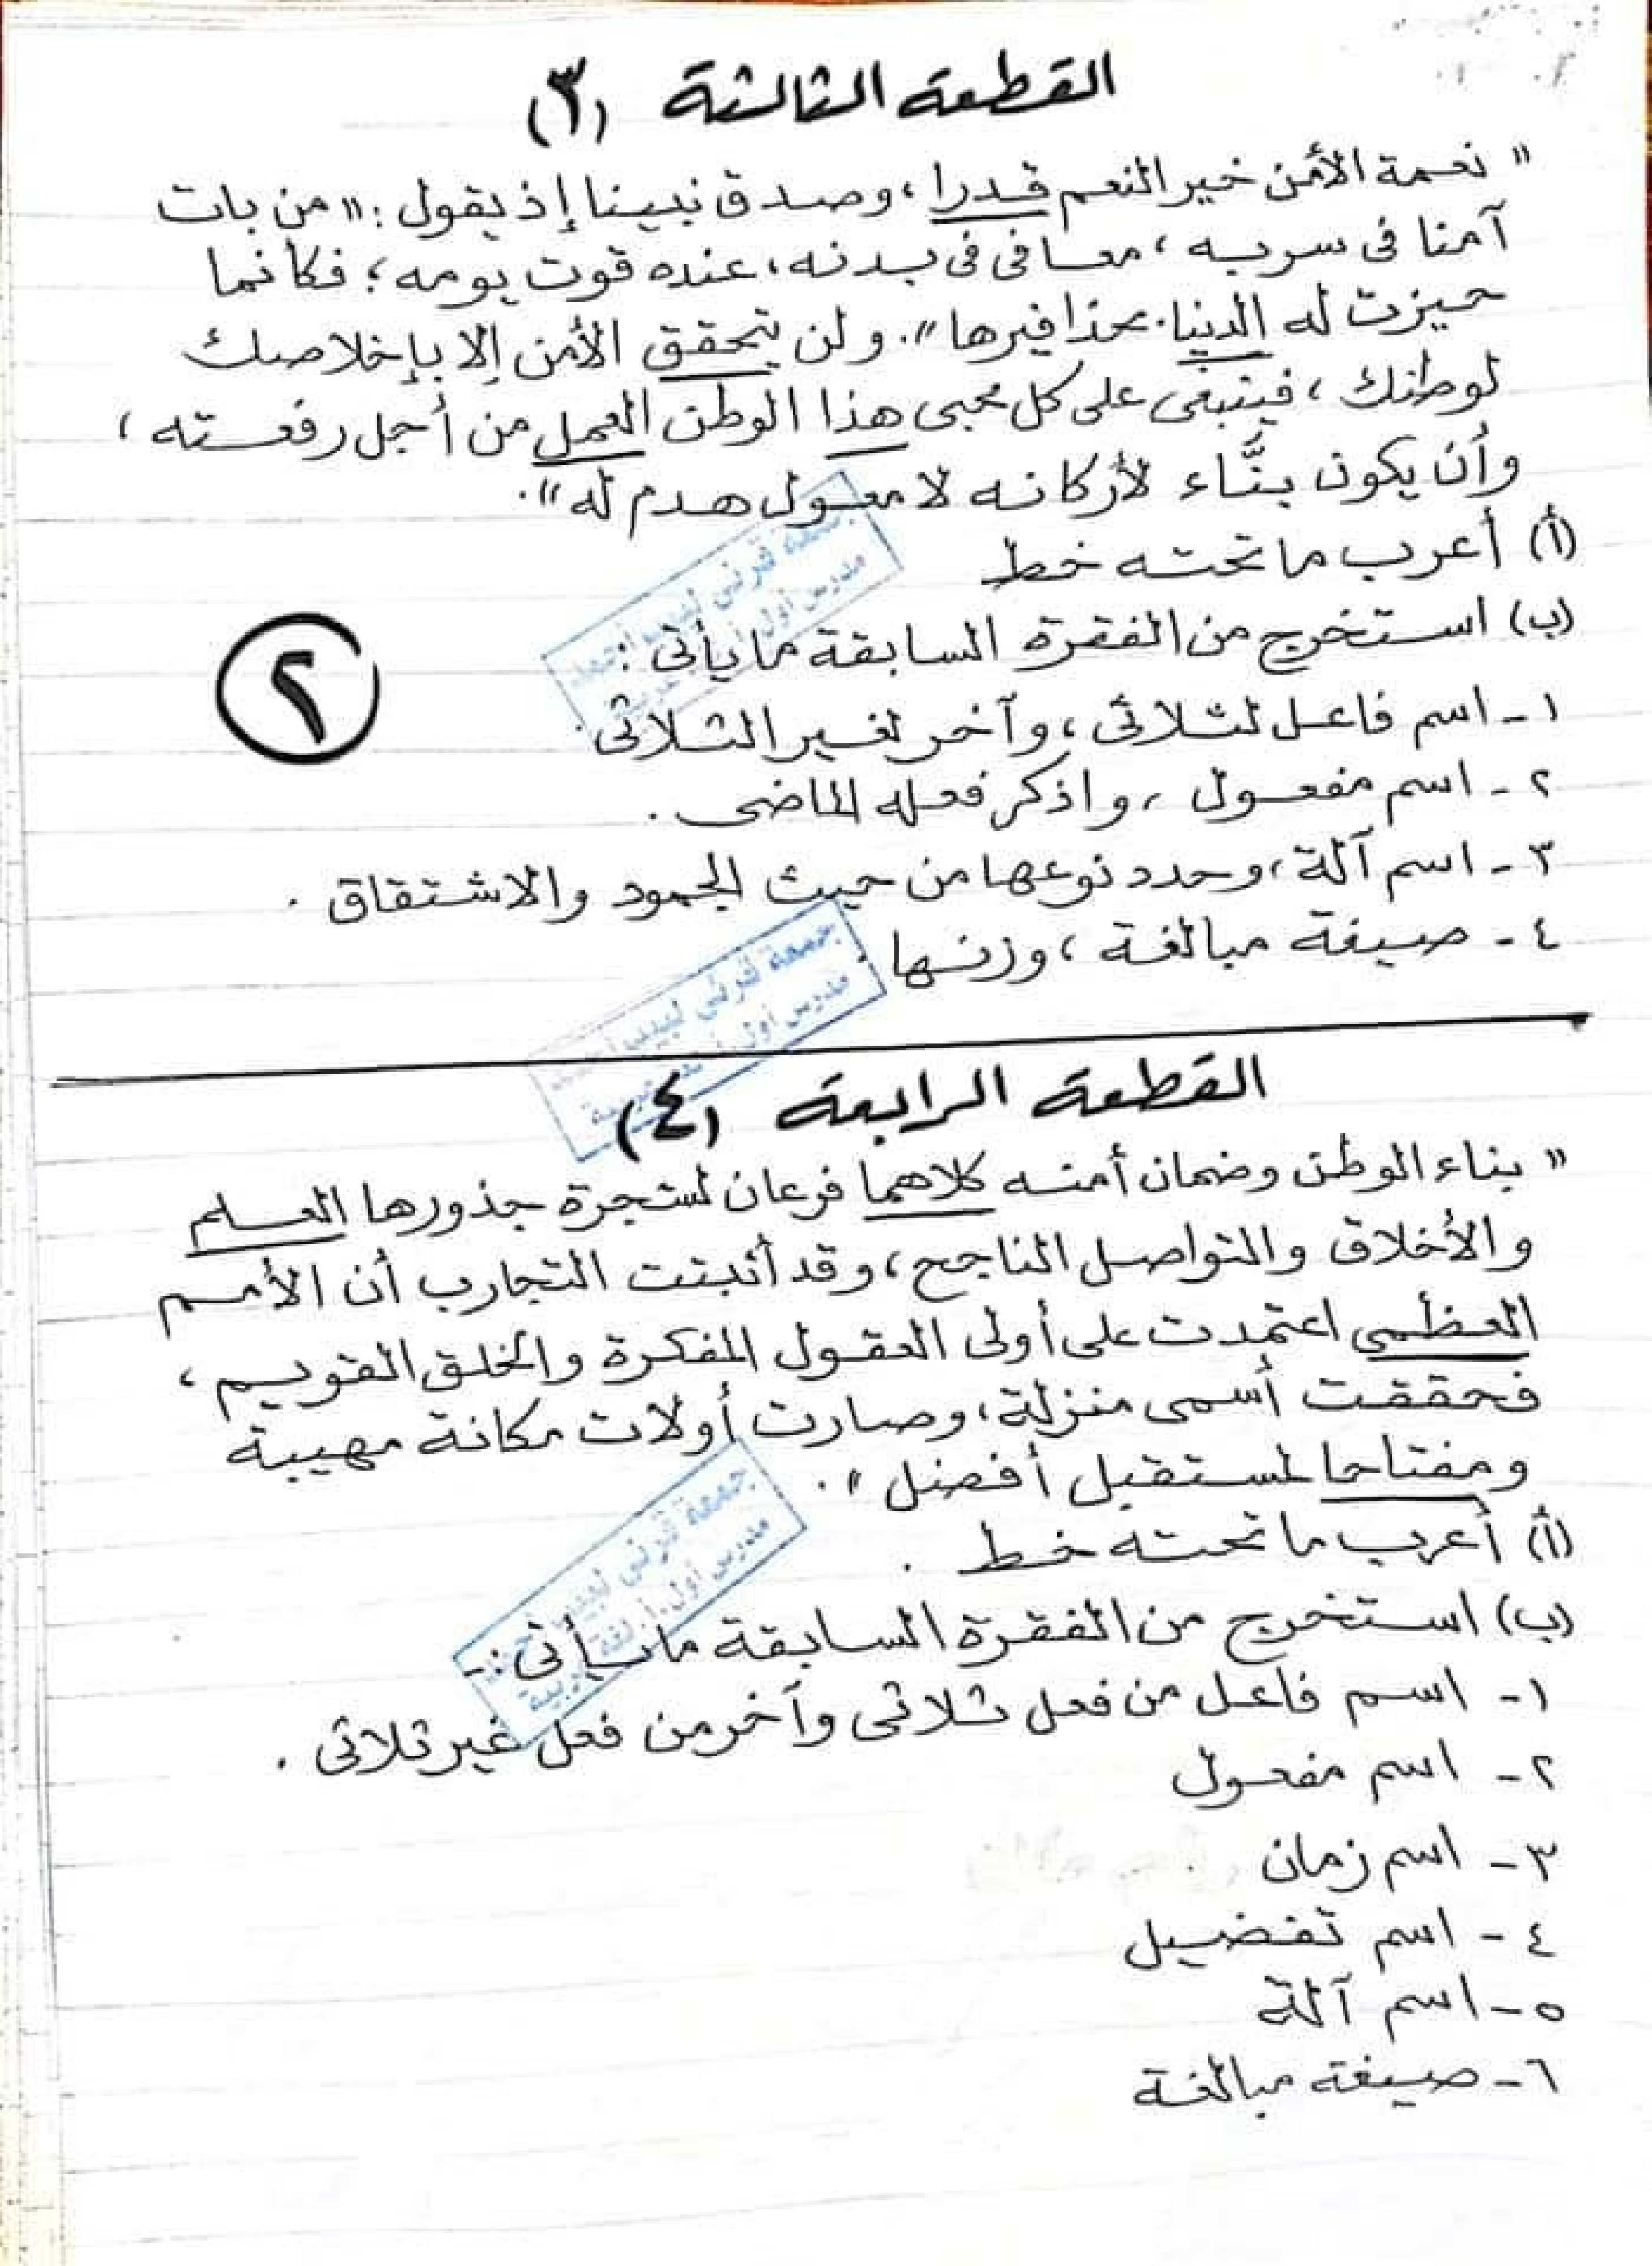 القطعة الثالثة (٣)
" نعمة الأمن خير النعم قدرا ، وصدق نبينا إذ يقول : " من بات
آمنا فى سربه ، معافى فى بدنه ، عنده قوت يومه ؛ فكأنما
حيزت له الدنيا بحذافيرها " . ولن يتحقق الأمن إلا بإخلاصك
لوطنك ، فينبغى على كل محبى هذا الوطن العمل من أجل رفعته ،
وأن يكون بنَّاء لأركانه لا معول هدم له " .
(أ) أعرب ما تحته خط
(ب) استخرج من الفقرة السابقة ما يأتى :
١ - اسم فاعل لثلاثى ، وآخر لغير الثلاثى .
٢ - اسم مفعول ، واذكر فعله الماضى .
٣ - اسم آلة ، وحدد نوعها من حيث الجمود والاشتقاق .
٤ - صيغة مبالغة ، وزنها .
٢
جمعة قرني لبيب
مدرس أول أ لغة عربية
القطعة الرابعة (٤)
" بناء الوطن وضمان أمنه كلاهما فرعان لشجرة جذورها العلم
والأخلاق والتواصل الناجح ، وقد أثبتت التجارب أن الأمم
العظمى اعتمدت على أولى العقول المفكرة والخلق القويم ،
فحققت أسمى منزلة ، وصارت أولات مكانة مهيبة
ومفتاحا لمستقبل أفضل " .
(أ) أعرب ما تحته خط .
(ب) استخرج من الفقرة السابقة ما يأتى :-
١ - اسم فاعل من فعل ثلاثى وآخر من فعل غير ثلاثى .
٢ - اسم مفعول
٣ - اسم زمان
٤ - اسم تفضيل
٥ - اسم آلة
٦ - صيغة مبالغة